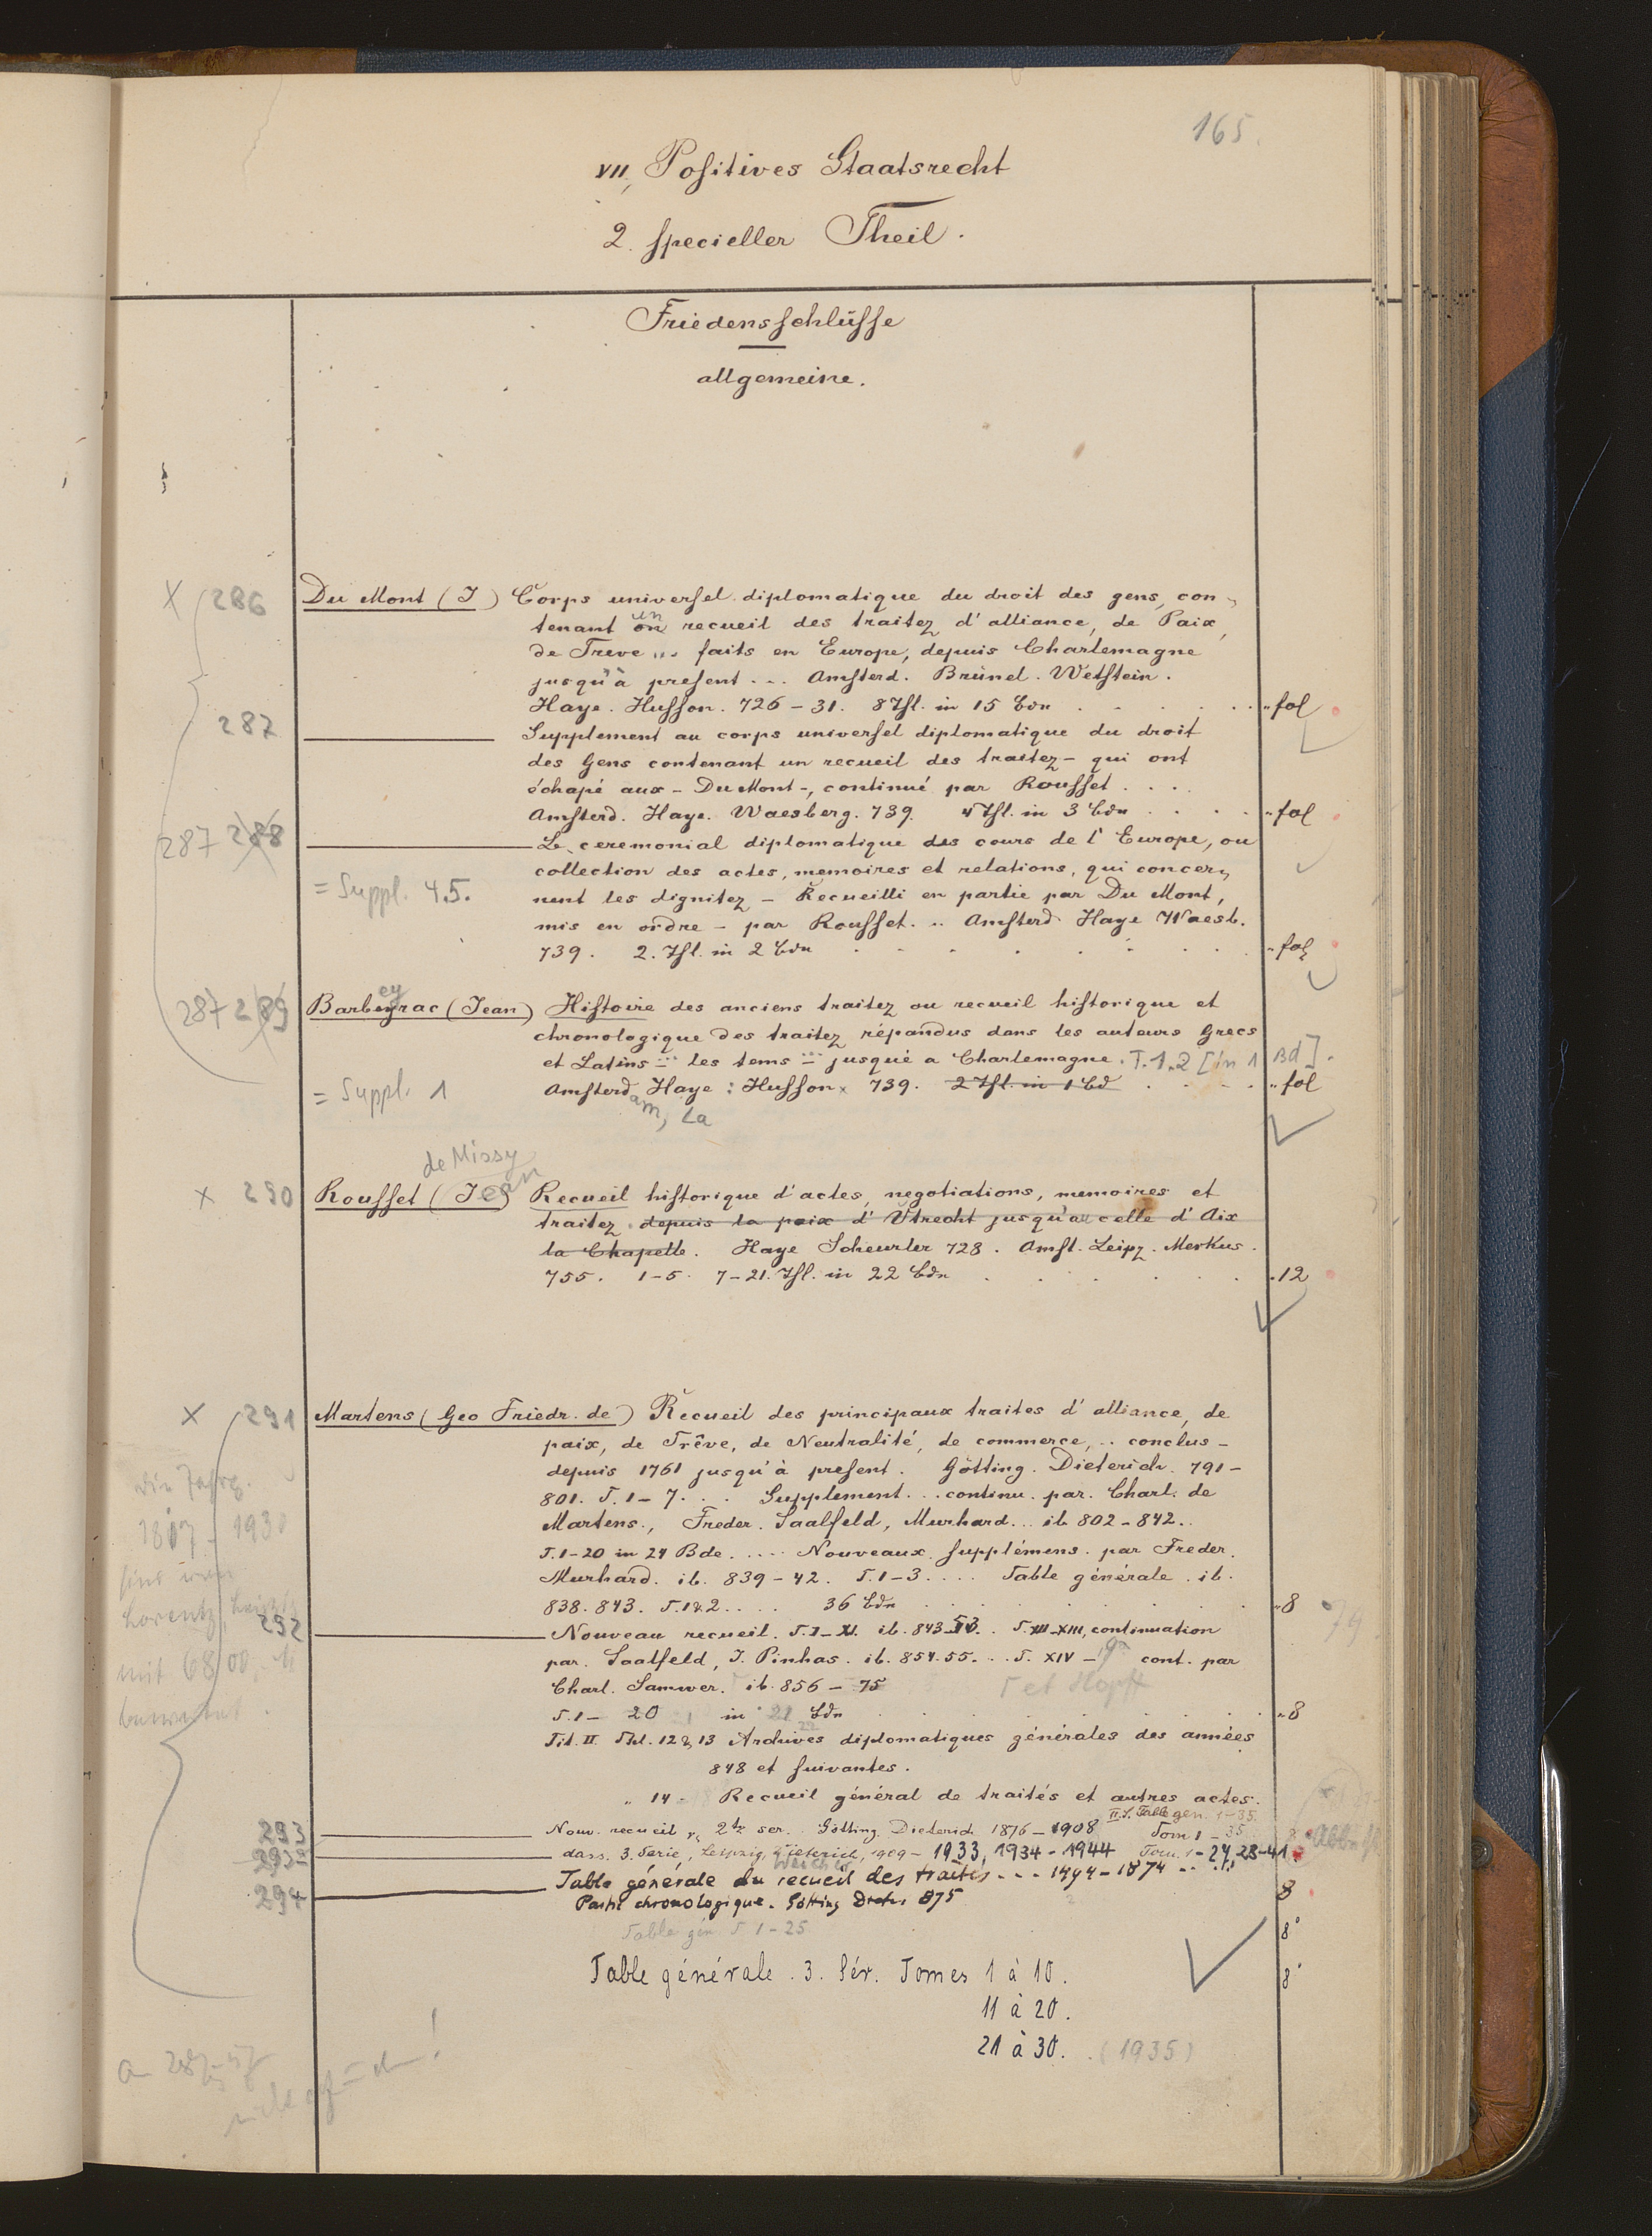 165.
VII, Positives Staatsrecht
2. specieller Theil.
Friedensschlüsse
allgemeine.
X 286 Du Mont (J) Corps universel diplomatique du droit des gens, con-
tenant on un recueil des traitez d'alliance, de Paix,
de Treve ... faits en Europe, depuis Charlemagne
jusqu'à present ... Amsterd. Brünel. Wetstein.
Haye. Husson. 726-31. 8 Thl. in 15 Bdn . . . . . . fol
287 Supplement au corps universel diplomatique du droit
des Gens contenant un recueil des traitez - qui ont
échapé aux - Du Mont -, continué par Rousset . . . .
Amsterd. Haye. Waesberg. 739. 4 Thl. in 3 Bdn . . . . fol
287 288 Le ceremonial diplomatique des cours de l'Europe, ou
collection des actes, memoires et relations, qui concer-
= Suppl. 4.5. nent les dignitez - Recueilli en partie par Du Mont,
mis en ordre - par Rousset. .. Amsterd Haye Waesb.
739. 2. Thl. in 2 Bdn . . . . . . . fol
287 289 Barbeyrac (Jean) Histoire des anciens traitez ou recueil historique et
chronologique des traitez répandus dans les auteurs Grecs
et Latins ... les tems ... jusque a Charlemagne. T. 1.2 [in 1 Bd].
= Suppl. 1 Amsterdam, La Haye : Husson 739. 2 Thl. in 1 Bd . . . . fol
de Missy
X 290 Rousset (Jean) Recueil historique d'actes, negotiations, memoires et
traitez depuis la paix d'Utrecht jusqu'a celle d'Aix
la Chapelle. Haye Scheurler 728. Amst. Leipz. Merkus.
755. 1-5. 7-21. Thl. in 22 Bdn . . . . . . . 12
X 291 Martens (Geo Friedr. de) Recueil des principaux traites d'alliance, de
paix, de Trêve, de Neutralité, de commerce, .. conclus -
depuis 1761 jusqu'à present. Götting. Dieterich. 791-
801. T. 1-7. . . Supplement . . . continu. par. Charl. de
Martens., Freder. Saalfeld, Murhard... ib 802-842..
T. 1-20 in 24 Bde. .... Nouveaux supplémens. par Freder.
Murhard. ib. 839-42. T. 1-3 .... Table générale. ib.
838. 843. T. 1 & 2 .... 36 Bdn . . . . . . . 8
292 Nouveau recueil. T. I-XI. ib. 843-53. . T. XII-XIII, continuation
par. Saalfeld, J. Pinhas. ib. 854.55. .. T. XIV - cont. par
Charl. Samwer. ib. 856-75 et Hopff
T. 1- 20 in 21 Bdn . . . . . . 8
Tit. II Thl. 12 & 13 Archives diplomatiques générales des années
848 et suivantes.
" 14 - Recueil général de traités et autres actes.
II. S. Table gen. 1-35.
293 Nouv. recueil 2te ser. Götting. Dieterich 1876-1908 Tom 1-35. 8
293a dass. 3. Serie, Leipzig, Dieterich, 1909-1933, 1934-1944 Tom. 1-27, 28-41.
Weicher
294 Table générale du recueil des traités ... 1494-1874 ...
Partie chronologique. Götting Dietr. 875 8
Table gén. T. 1-25 8°
Table générale. 3. Sér. Tomes 1 à 10. 8°
11 à 20.
21 à 30. (1935)